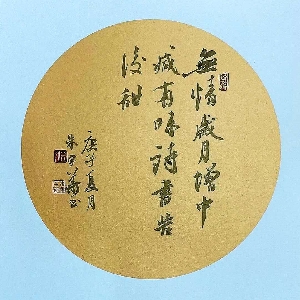 無情歲月增中
減有味詩書苦
後甜
庚子夏月
朱